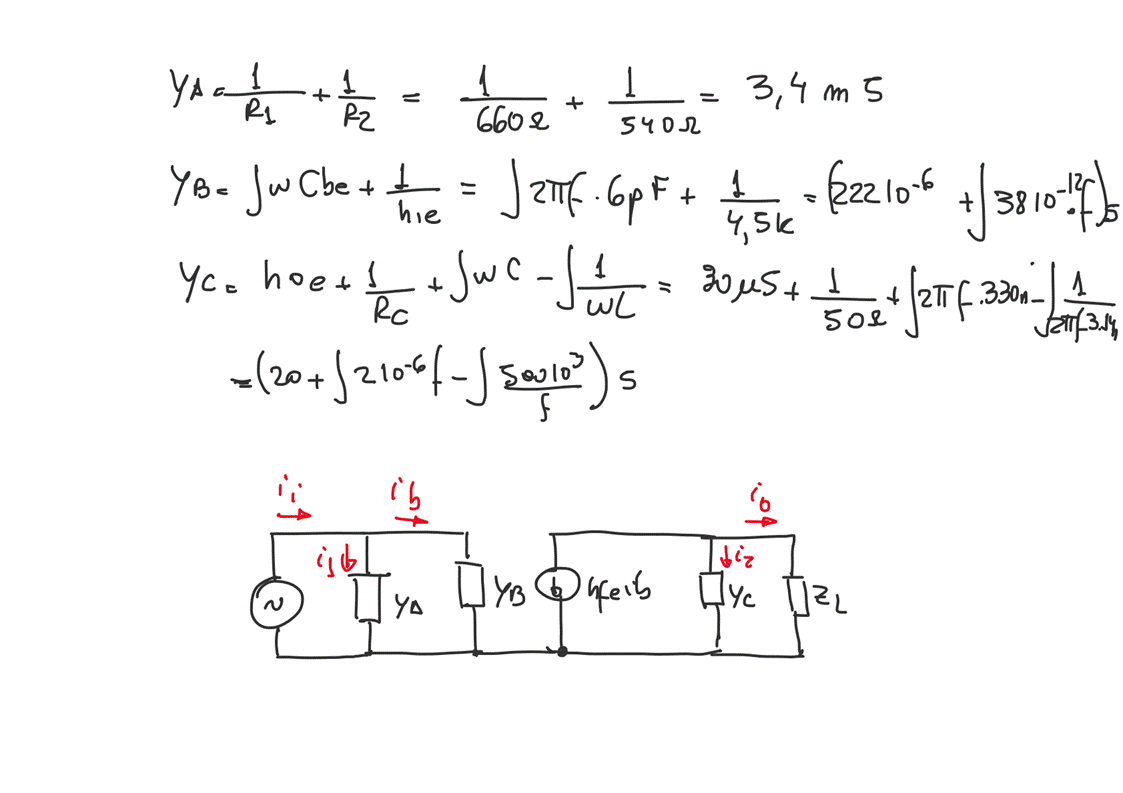 YA = 1/R1 + 1/R2 = 1/660Ω + 1/540Ω = 3,4 m S
YB = jw Cbe + 1/hie = j2πf . 6pF + 1/4,5k = (222 10^-6 + j38 10^-12 . f) S
YC = hoe + 1/RC + jwC - j 1/wL = 30µS + 1/50Ω + j2πf .330n - j 1/2πf
= (20 + j2 10^-6 f - j 500 10^3/f) S
ii ib io
i1 i2
~ YA YB hfeib YC ZL